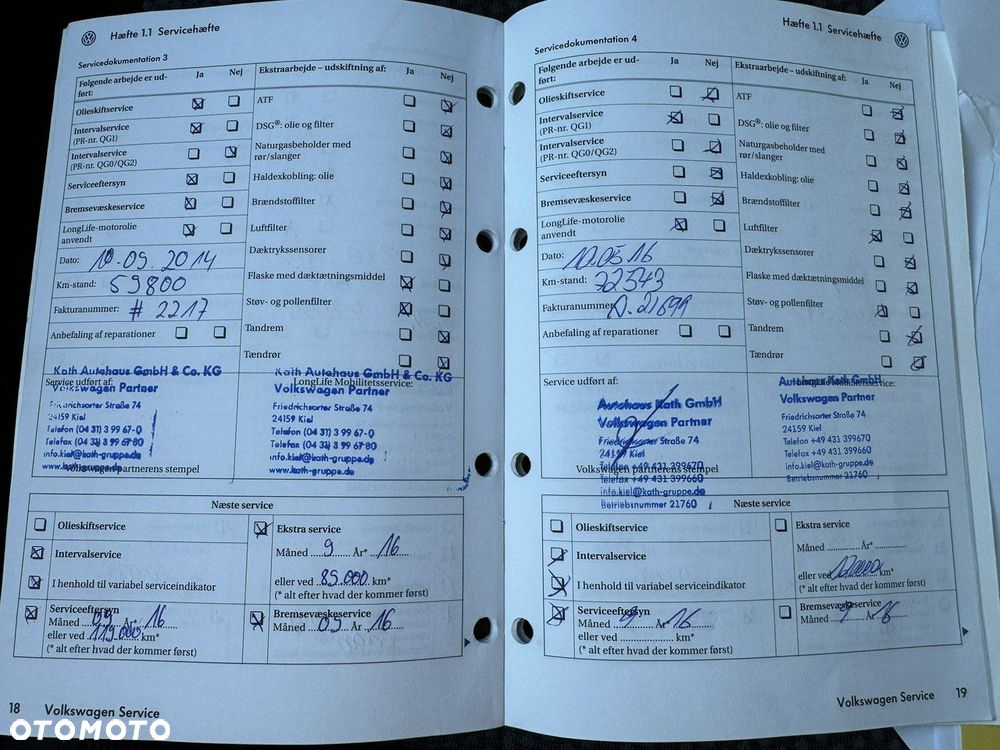 Hæfte 1.1 Servicehæfte
Servicedokumentation 3
Følgende arbejde er ud-
ført:
Ja Nej
Olieskiftservice
Intervalservice
(PR-nr. QG1)
Intervalservice
(PR-nr. QG0/QG2)
Serviceeftersyn
Bremsevæskeservice
LongLife-motorolie
anvendt
Dato: 10.09.2014
Km-stand: 59800
Fakturanummer: # 2217
Anbefaling af reparationer
Ekstraarbejde – udskiftning af: Ja Nej
ATF
DSG®: olie og filter
Naturgasbeholder med
rør/slanger
Haldexkobling: olie
Brændstoffilter
Luftfilter
Dæktrykssensorer
Flaske med dæktætningsmiddel
Støv- og pollenfilter
Tandrem
Tændrør
Service udført af:
Kath Autohaus GmbH & Co. KG
Volkswagen Partner
Friedrichsorter Straße 74
24159 Kiel
Telefon (04 31) 3 99 67-0
Telefax (04 31) 3 99 67-80
info.kiel@kath-gruppe.de
www.kath-gruppe.de
Volkswagen partnerens stempel
LongLife Mobilitetsservice:
Kath Autohaus GmbH & Co. KG
Volkswagen Partner
Friedrichsorter Straße 74
24159 Kiel
Telefon (04 31) 3 99 67-0
Telefax (04 31) 3 99 67-80
info.kiel@kath-gruppe.de
www.kath-gruppe.de
Næste service
Olieskiftservice
Intervalservice
I henhold til variabel serviceindikator
Serviceeftersyn
Måned 09 År* 16
eller ved 119000 km*
(* alt efter hvad der kommer først)
Ekstra service
Måned 9 År* 16
eller ved 89.000 km*
(* alt efter hvad der kommer først)
Bremsevæskeservice
Måned 09 År 16
18 Volkswagen Service
Hæfte 1.1 Servicehæfte
Servicedokumentation 4
Følgende arbejde er ud-
ført:
Ja Nej
Olieskiftservice
Intervalservice
(PR-nr. QG1)
Intervalservice
(PR-nr. QG0/QG2)
Serviceeftersyn
Bremsevæskeservice
LongLife-motorolie
anvendt
Dato: 10.05.16
Km-stand: 72543
Fakturanummer:
Anbefaling af reparationer
Ekstraarbejde – udskiftning af: Ja Nej
ATF
DSG®: olie og filter
Naturgasbeholder med
rør/slanger
Haldexkobling: olie
Brændstoffilter
Luftfilter
Dæktrykssensorer
Flaske med dæktætningsmiddel
Støv- og pollenfilter
Tandrem
Tændrør
Service udført af:
Autohaus Kath GmbH
Volkswagen Partner
Friedrichsorter Straße 74
24159 Kiel
Telefon +49 431 399670
Telefax +49 431 399670
info.kiel@kath-gruppe.de
Betriebsnummer 21760
Volkswagen partnerens stempel
Autohaus Kath GmbH
Volkswagen Partner
Friedrichsorter Straße 74
24159 Kiel
Telefon +49 431 399670
Telefax +49 431
info.kiel@kath-gruppe.de
Betriebsnummer 21760
Næste service
Olieskiftservice
Intervalservice
I henhold til variabel serviceindikator
Serviceeftersyn
Måned 9 År 16
eller ved km*
(* alt efter hvad der kommer først)
Ekstra service
Måned År*
eller ved km*
(* alt efter hvad der kommer først)
Bremsevæskeservice
Måned 9 År 16
Volkswagen Service 19
OTOMOTO